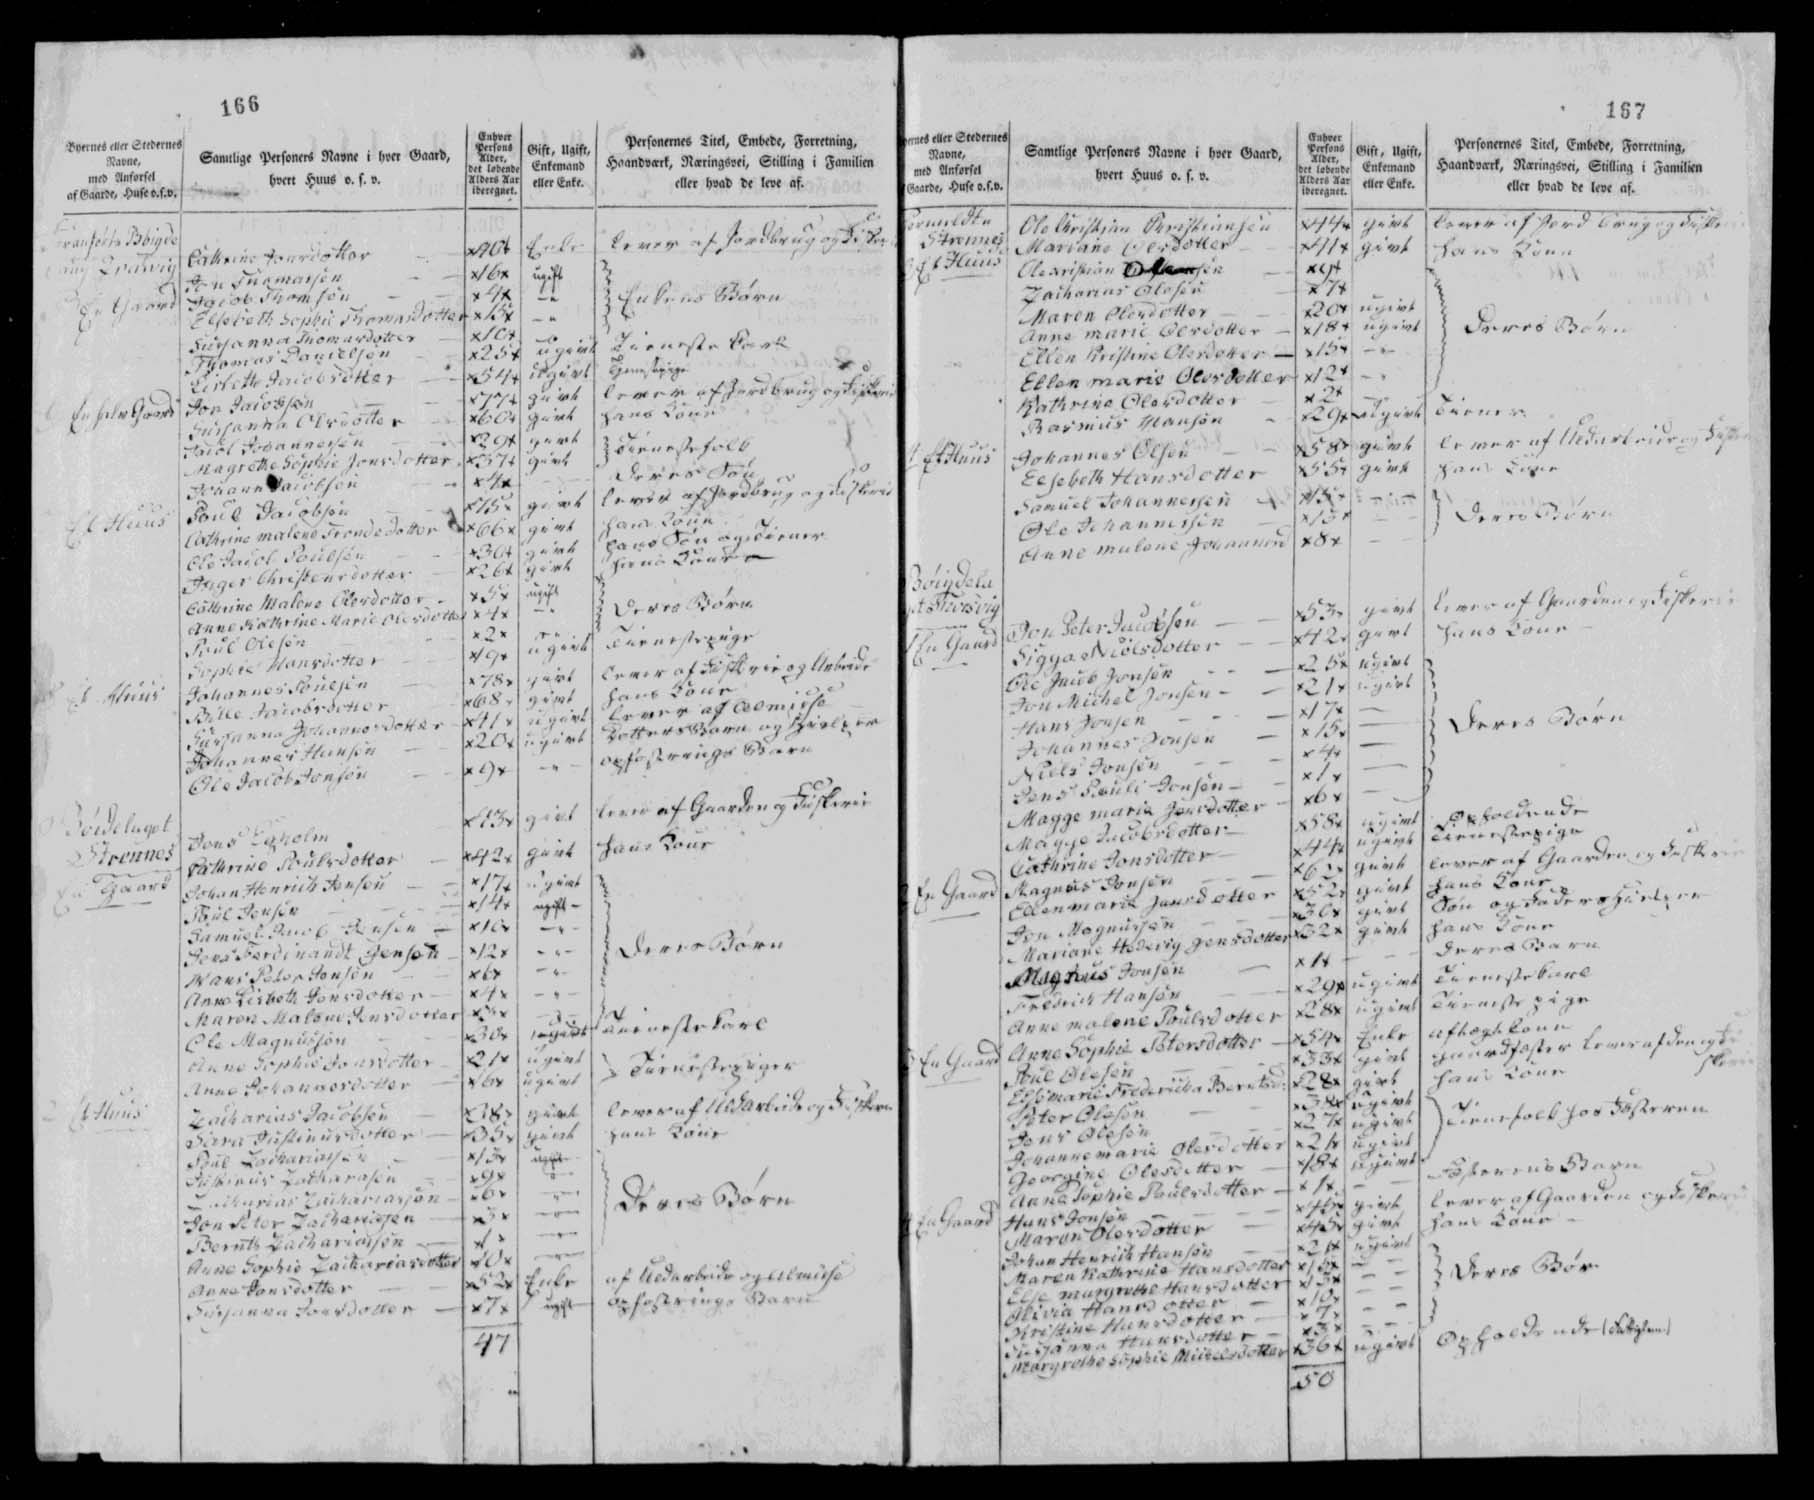 166
Byernes eller Stedernes Navne, med Anførsel af Gaarde, Huse o.s.v.
Samtlige Personers Navne i hver Gaard, hvert Huus o. s. v.
Enhver Persons Alder, det løbende Alders Aar iberegnet.
Gift, Ugift, Enkemand eller Enke.
Personernes Titel, Embede, Forretning, Haandværk, Næringsvei, Stilling i Familien eller hvad de leve af.
Cathrine Jonsdotter 40 Enke lever af Jordbrug og
En Gaard
Jon Thomasen 16 ugift
Jacob Thomsen 4 -"- Enkens Børn
Elsebeth Sophie Thomasdotter 13 -"-
Susanna Thomasdotter 10
Thomas Danielsen 25 ugivt Tieneste Karl
Lisbeth Jacobsdotter 54 ugivt Tienestepige
En halv Gaard Jon Jacobsen 77 givt lever af Jordbrug og Fiskerie
Susanna Olesdotter 60 givt hans Kone
Jacob Johannesen 29 givt Tienestefolk
Magrethe Sophie Jonsdotter 37 givt
Johan Jacobsen 4 Deres Søn
Et Huus Poul Jacobsen 75 givt lever af Jordbrug og Fiskerie
Cathrine Malene Trondesdotter 66 givt hans Kone
Ole Jacob Poulsen 30 givt hans Søn og Tiener
Inger Christensdotter 26 givt hans Kone
Cathrine Malene Olesdotter 5 ugift
Anne Kathrine Marie Olesdotter 4 -"- Deres Børn
Poul Olesen 2 -"-
Sophie Hansdotter 19 ugivt Tienestepige
Et Huus Johannes Poulsen 78 givt lever af Fiskerie og Arbeide
Bille Jacobsdotter 68 givt hans Kone
Susanna Johannesdotter 41 ugivt lever af Almisse
Johannes Hansen 20 ugivt Dotters Barn og Hielper
Ole Jacob Jonsen 9 -"- opfostrings Barn
Bøidelaget
Strønnes
En Gaard
Jens Egholm 43 givt lever af Gaarden og Fiskerie
Cathrine Poulsdotter 42 givt hans Kone
Johan Henrich Jensen 17 ugivt
Poul Jensen 14 ugift
Samuel Jacob Jensen 10 -"-
Jens Ferdinandt Jensen 12 -"- Deres Børn
Hans Peter Jensen 6 -"-
Anne Lisbeth Jensdotter 4 -"-
Maren Malene Jensdotter
Ole Magnussen 30 ugivt Tieneste Karl
Anne Sophie Jonsdotter 21 ugivt Tienestepiger
Anne Johannesdotter 16 ugivt
Et Huus Zacharias Jacobsen 38 givt lever af Udarbeide og Fiskerie
Sara Justinusdotter 35 givt hans Kone
Poul Zachariasen 13 ugift
Justinus Zachariasen 9 -"-
Zacharias Zachariassen 6 -"- Deres Børn
Jon Peter Zachariasen 3 -"-
Bernth Zachariassen 1 -"-
Anne Sophie Zachariasdotter 10 -"-
Anne Jonsdotter 52 Enke af Udarbeide og Almisse
Susanna Jonsdotter 7 ugift opfostrings Barn
47
167
Byernes eller Stedernes Navne, med Anførsel af Gaarde, Huse o.s.v.
Samtlige Personers Navne i hver Gaard, hvert Huus o. s. v.
Enhver Persons Alder, det løbende Alders Aar iberegnet.
Gift, Ugift, Enkemand eller Enke.
Personernes Titel, Embede, Forretning, Haandværk, Næringsvei, Stilling i Familien eller hvad de leve af.
Strønnes
Et Huus
Ole Christian Christiansen 44 givt lever af Jord brug og Fiskerie
Mariane Olesdotter 41 givt hans Kone
Zacharias Olesen 7
Maren Olesdotter 20 ugivt
Anne marie Olesdotter 18 ugivt Deres Børn
Ellen Kristine Olesdotter 15 -"-
Ellen marie Olesdotter 12 -"-
Kathrine Olesdotter 2
Rasmus Hansen 29 ugivt Tiener
Et Huus Johannes Olsen 58 givt lever af Udarbeide og
Elsebeth Hansdotter 55 givt hans Kone
Samuel Johannesen
Ole Johannesen 13 Deres Børn
Anne malene Johannesd 8
Bøigdelag
En Gaard
Jon Peter Jacobsen 53 givt lever af Gaarden og Fiskerie
Sigga Nielsdotter 42 givt hans Kone
Ole Jacob Jonsen 25 ugivt
Jon Michel Jonsen 21 ugivt
Hans Jonsen 17 Deres Børn
Johannes Jonsen 15
Niels Jonsen 4
Jens Pouli Jonsen 1
Magge marie Jonsdotter 6
Magge Jacobsdotter 58 ugivt Opholdende
Cathrine Jonsdotter 44 ugivt Tienestepige
En Gaard Magnus Jonsen 62 givt lever af Gaarden og Fiskerie
Ellen marie Jonsdotter 52 givt hans Kone
Jon Magnussen 30 givt Søn og Faders Hielper
Mariane Hedevig Jensdotter 32 givt hans Kone
Magnus Jonsen 1 Deres Barn
Fredrich Hansen 29 ugivt Tienestekarl
Anne malene Poulsdotter 28 ugivt Tienestepige
En Gaard Anne Sophie Petersdotter 54 Enke aftægtskone
Poul Olesen 33 givt gaardfæster lever af den og Fiskerie
Else marie Frederikka Berntsd: 28 givt hans Kone
Peter Olesen 38 ugivt
Jens Olesen 27 ugivt Tienefolk hos Fæsteren
Johanne marie Olesdotter 21 ugivt
Georgine Olesdotter 18 ugivt
Anne Sophie Poulsdotter 1 Fæsterens Barn
En Gaard Hans Jonsen 45 givt lever af Gaarden og Fiskerie
Maren Olesdotter 45 givt hans Kone
Johan Henrich Hansen 21 ugivt
Maren Kathrine Hansdotter 15
Else margrethe Hansdotter 13 Deres Børn
Olivia Hansdotter 10
Kristine Hansdotter 7
Susanna Hansdotter 3
Margrethe Sophie Mickelsdotter 36 ugivt Opholdende (Fattiglem)
50